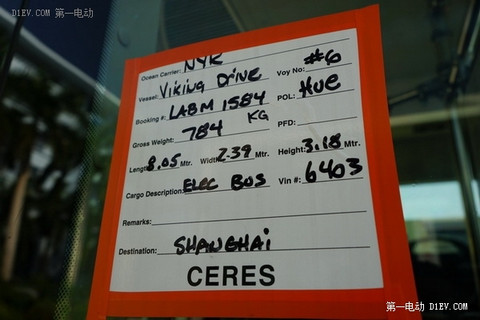 D1EV.COM 第一电动
Ocean Carrier: NYK
Vessel: Viking Drive Voy No: #6
Booking #: LABM 1584 POL: Hue
Gross Weight: 784 KG PFD:
Length 8.05 Mtr. Width 2.39 Mtr. Height: 3.18 Mtr.
Cargo Description: ELEC BUS Vin #: 6403
Remarks:
Destination: SHANGHAI
CERES
第一电动 D1EV.COM